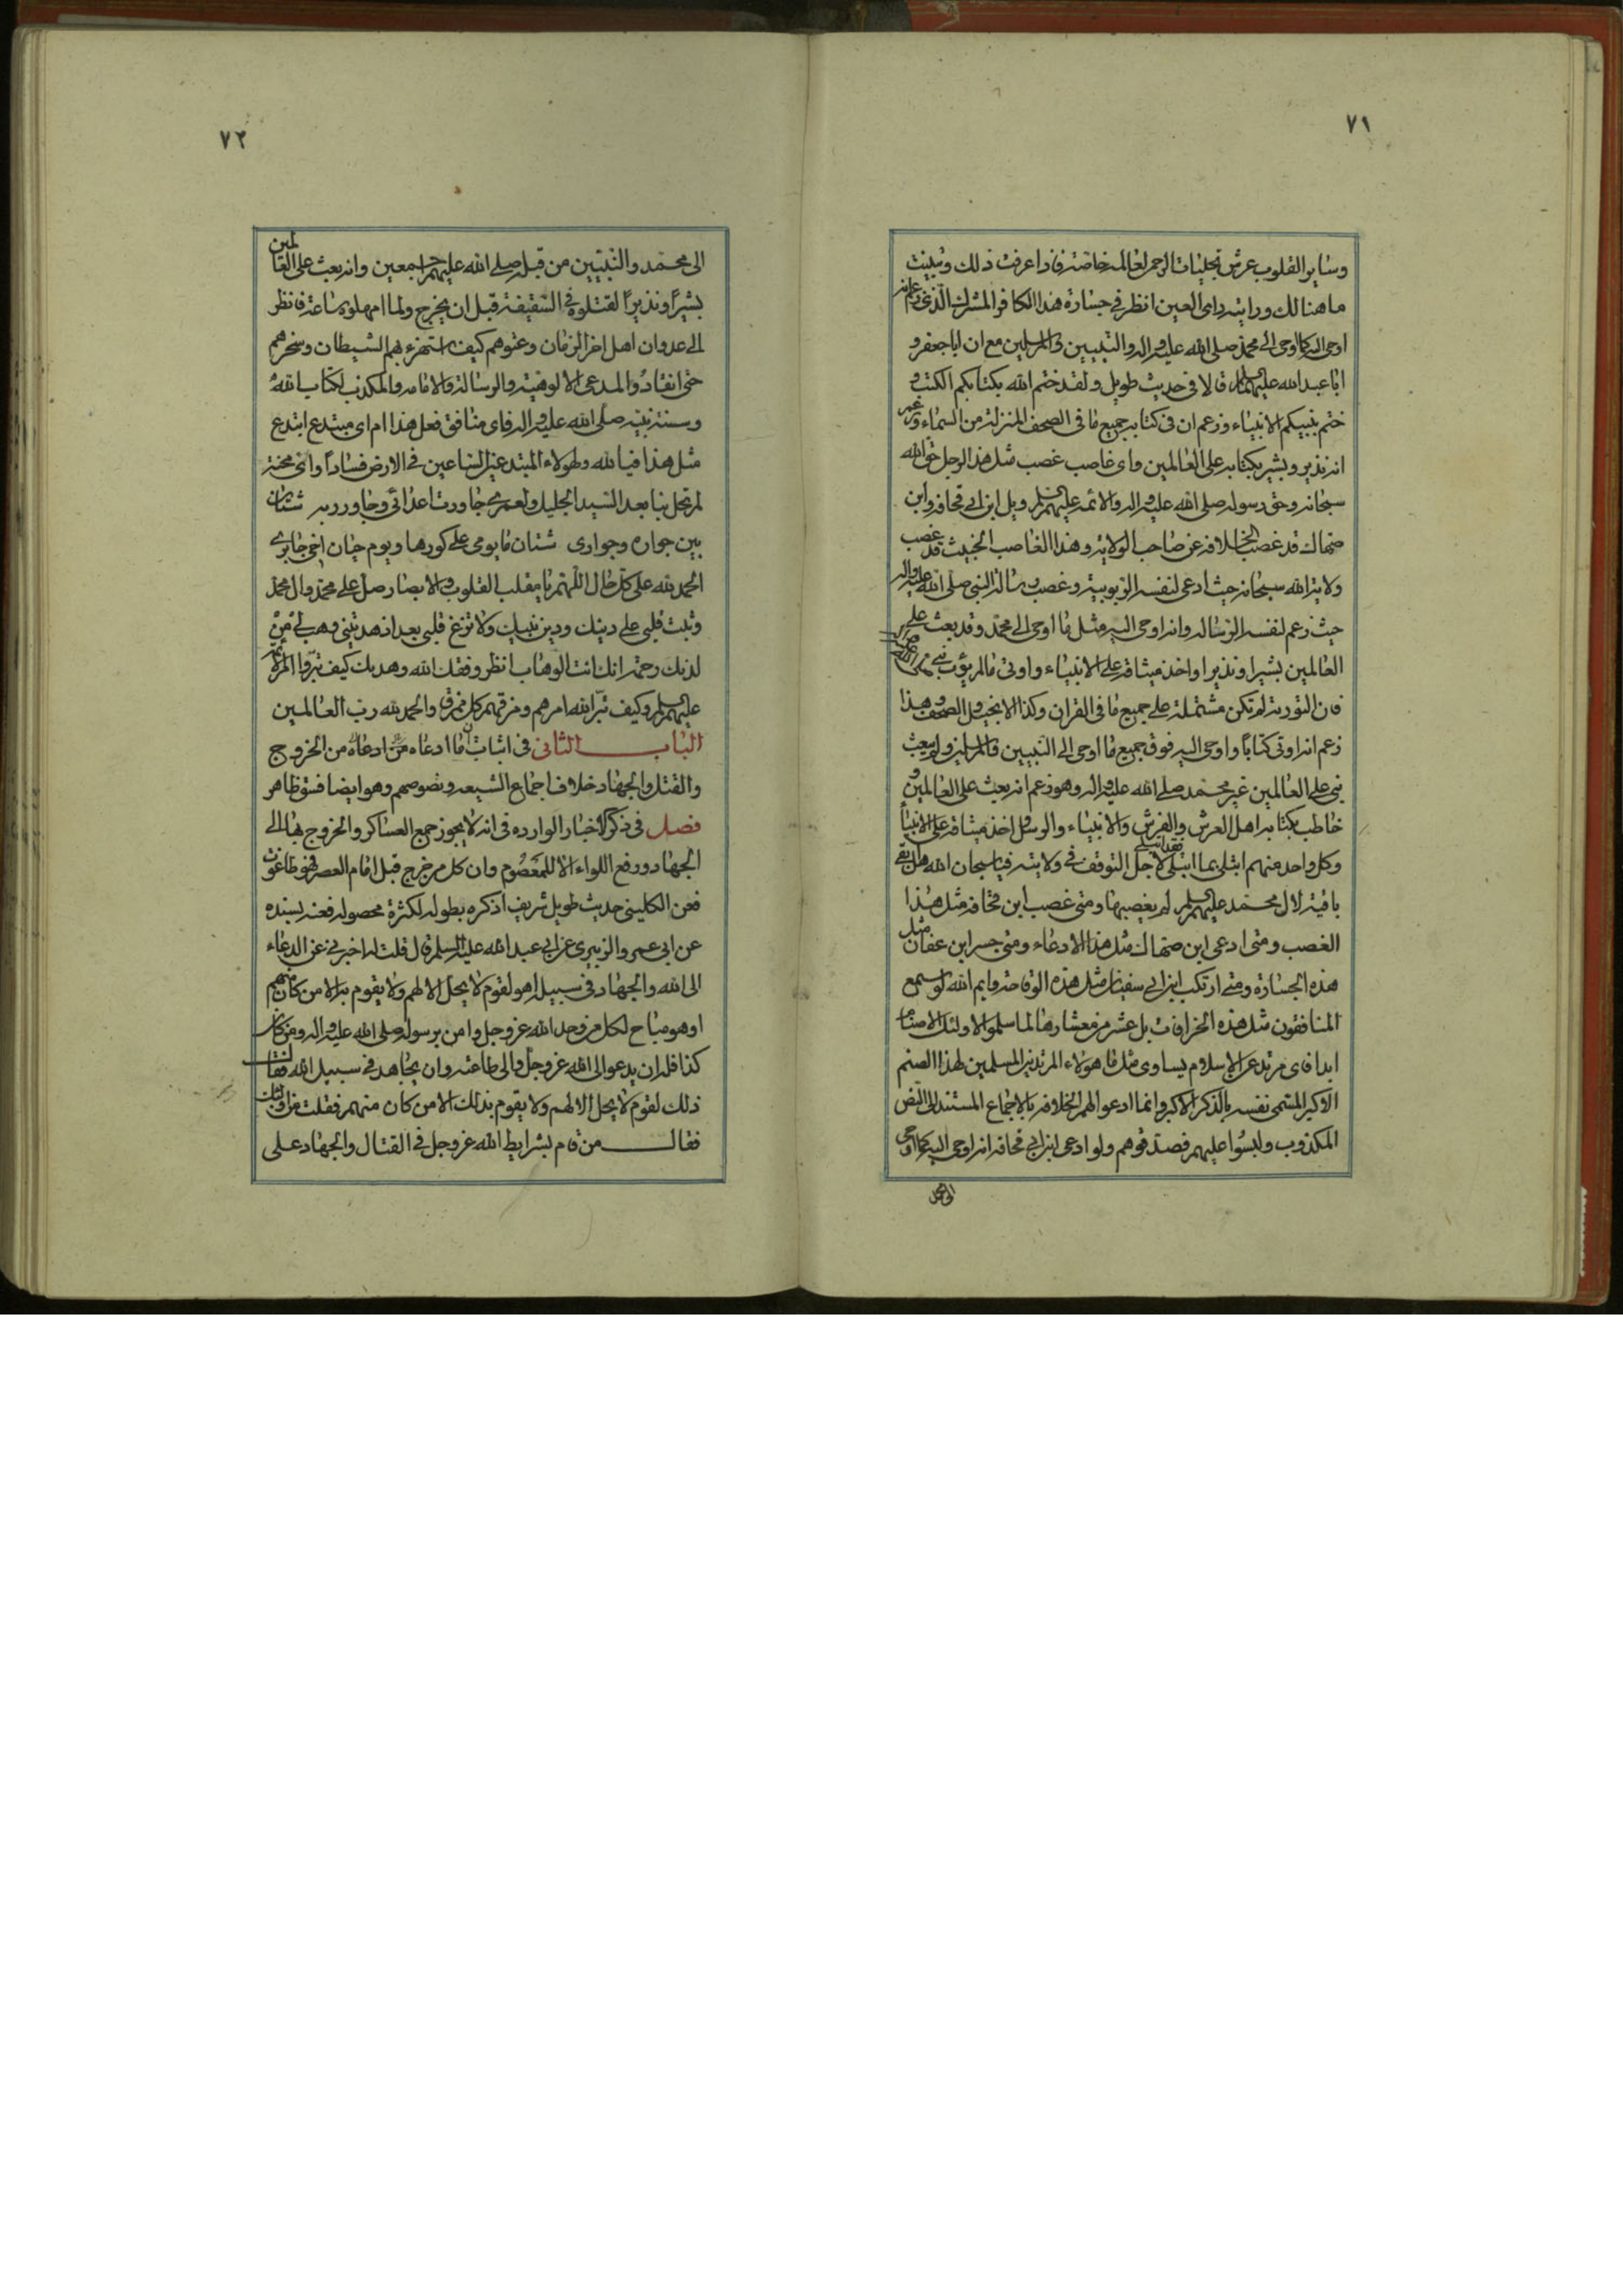 ٧١
وساير القلوب عرش تجليات الرحمن لعالمه خاصة فاذا عرفت ذلك وتبينت
ما هنالك ورايته رداى العين انظر في جسارة هذا الكافر المشرك الذي زعم انه
اوحى اليه كما اوحى الى محمد صلى الله عليه واله والنبيين والمرسلين مع ان ابا جعفر و
ابا عبد الله عليهما السلام قالا في حديث طويل ولقد ختم الله بكتابكم الكتب و
ختم بنبيكم الانبياء وزعم ان في كتابه جميع ما في الصحف المنزلة من السماء وزعم
انه نذير وبشير بكتابه على العالمين واى غاصب غصب مثل هذا الرجل حق الله
سبحانه وحق رسوله صلى الله عليه واله والائمه عليهم السلام ويل ابن ابي قحافه وابن
صهاك قد غصب الخلافه عن صاحب الولايه وهذا الغاصب الخبيث قد غصب
ولاية الله سبحانه حيث ادعى لنفسه الربوبيه وغصب رسالة النبي صلى الله عليه واله
حيث زعم لنفسه الرساله وانه اوحى اليه مثل ما اوحى الى محمد وقد بعث على
العالمين بشيرا ونذيرا واخذ ميثاقه على الانبياء واوتى ما لم يؤت نبى
فان التورية لم تكن مشتملة على جميع ما في القران وكذا الانجيل والصحف وهذا
زعم انه اوتى كتابا واوحى اليه فوق جميع ما اوحى الى النبيين والمرسلين ولم يبعث
نبى على العالمين غير محمد صلى الله عليه واله وهو زعم انه بعث على العالمين و
خاطب بكتابه اهل العرش والفرش والانبياء والرسل واخذ ميثاقه على الانبياء
وكل واحد منهم ابتلى بما ابتلى لاجل التوقف في ولايته فيا سبحان الله هل بقى
باقية لال محمد عليهم السلام لم يغصبها ومتى غصب ابن قحافه مثل هذا
الغصب ومتى ادعى ابن صهاك مثل هذا الادعاء ومتى جسر ابن عفان مثل
هذه الجسارة ومتى ارتكب ابن ابي سفيان مثل هذه الوقاحه وايم الله لو سمع
المنافقون مثل هذه الخرافات بل عشر من معشارها لما سلموا لاولئك الاصنام
ابدا فاى مرتد عن الاسلام يساوى مثل هؤلاء المرتدين المسلمين لهذا الصنم
الاكبر المسمى نفسه بالذكر الاكبر وانما ادعوا لهم الخلافه بالاجماع المستند الى النص
المكذوب ولبسوا عليهم فصدقوهم ولو ادعى ابن ابي قحافه انه اوحى اليه كما اوحى
٧٢
الى محمد والنبيين من قبله صلى الله عليهم اجمعين وانه بعث على العالمين
بشيرا ونذيرا لقتلوه في السقيفة قبل ان يخرج ولما امهلوه ساعة فانظر
الى عدوان اهل اخر الزمان وعتوهم كيف استهزء بهم الشيطان وسخرهم
حتى انقادوا لمدعى الالوهية والرسالة والامامه والمكذب لكتاب الله
وسنة نبيه صلى الله عليه واله فاى منافق فعل هذا ام اى مبتدع ابتدع
مثل هذا فيا لله ولهؤلاء المبتدعين الساعين في الارض فسادا واى محنة
لم تحل بنا بعد السيد الجليل ولعمري جاورت اعدائي وجاور ربه شتان
بين جواره وجوارى شتان ما يومي على كورها ويوم حيان اخي جابر
الحمد لله على كل حال اللهم يا مقلب القلوب والابصار صل على محمد وال محمد
وثبت قلبي على دينك ودين نبيك ولا تزغ قلبي بعد اذ هديتني وهب لي من
لدنك رحمة انك انت الوهاب انظر وفقك الله وهديك كيف تبروا امر الائمة
عليهم السلام وكيف تبر الله امرهم ومزقهم كل ممزق والحمد لله رب العالمين
الباب الثاني في اثبات ان ما ادعاه من ادعاه من الخروج
والقتل والجهاد خلاف اجماع الشيعه ونصوصهم وهو ايضا فسق ظاهر
فصل في ذكر الاخبار الوارده في انه لا يجوز جمع العساكر والخروج بها الى
الجهاد ورفع اللواء الا للمعصوم وان كل من خرج قبل امام العصر فهو طاغوت
فعن الكليني حديث طويل شريف اذكره بطوله لكثرة محصوله فعنه بسنده
عن ابي عمرو الزبيرى عن ابي عبد الله عليه السلم قال قلت له اخبرني عن الدعاء
الى الله والجهاد في سبيل اهو لقوم لا يحل الا لهم ولا يقوم به الا من كان منهم
او هو مباح لكل من وحد الله عز وجل وامن برسوله صلى الله عليه واله ومن كان
كذا فله ان يدعو الى الله عز وجل والى طاعته وان يجاهد في سبيل الله فقال
ذلك لقوم لا يحل الا لهم ولا يقوم بذلك الا من كان منهم فقلت من اولئك
فقال من قام بشرايط الله عز وجل في القتال والجهاد على